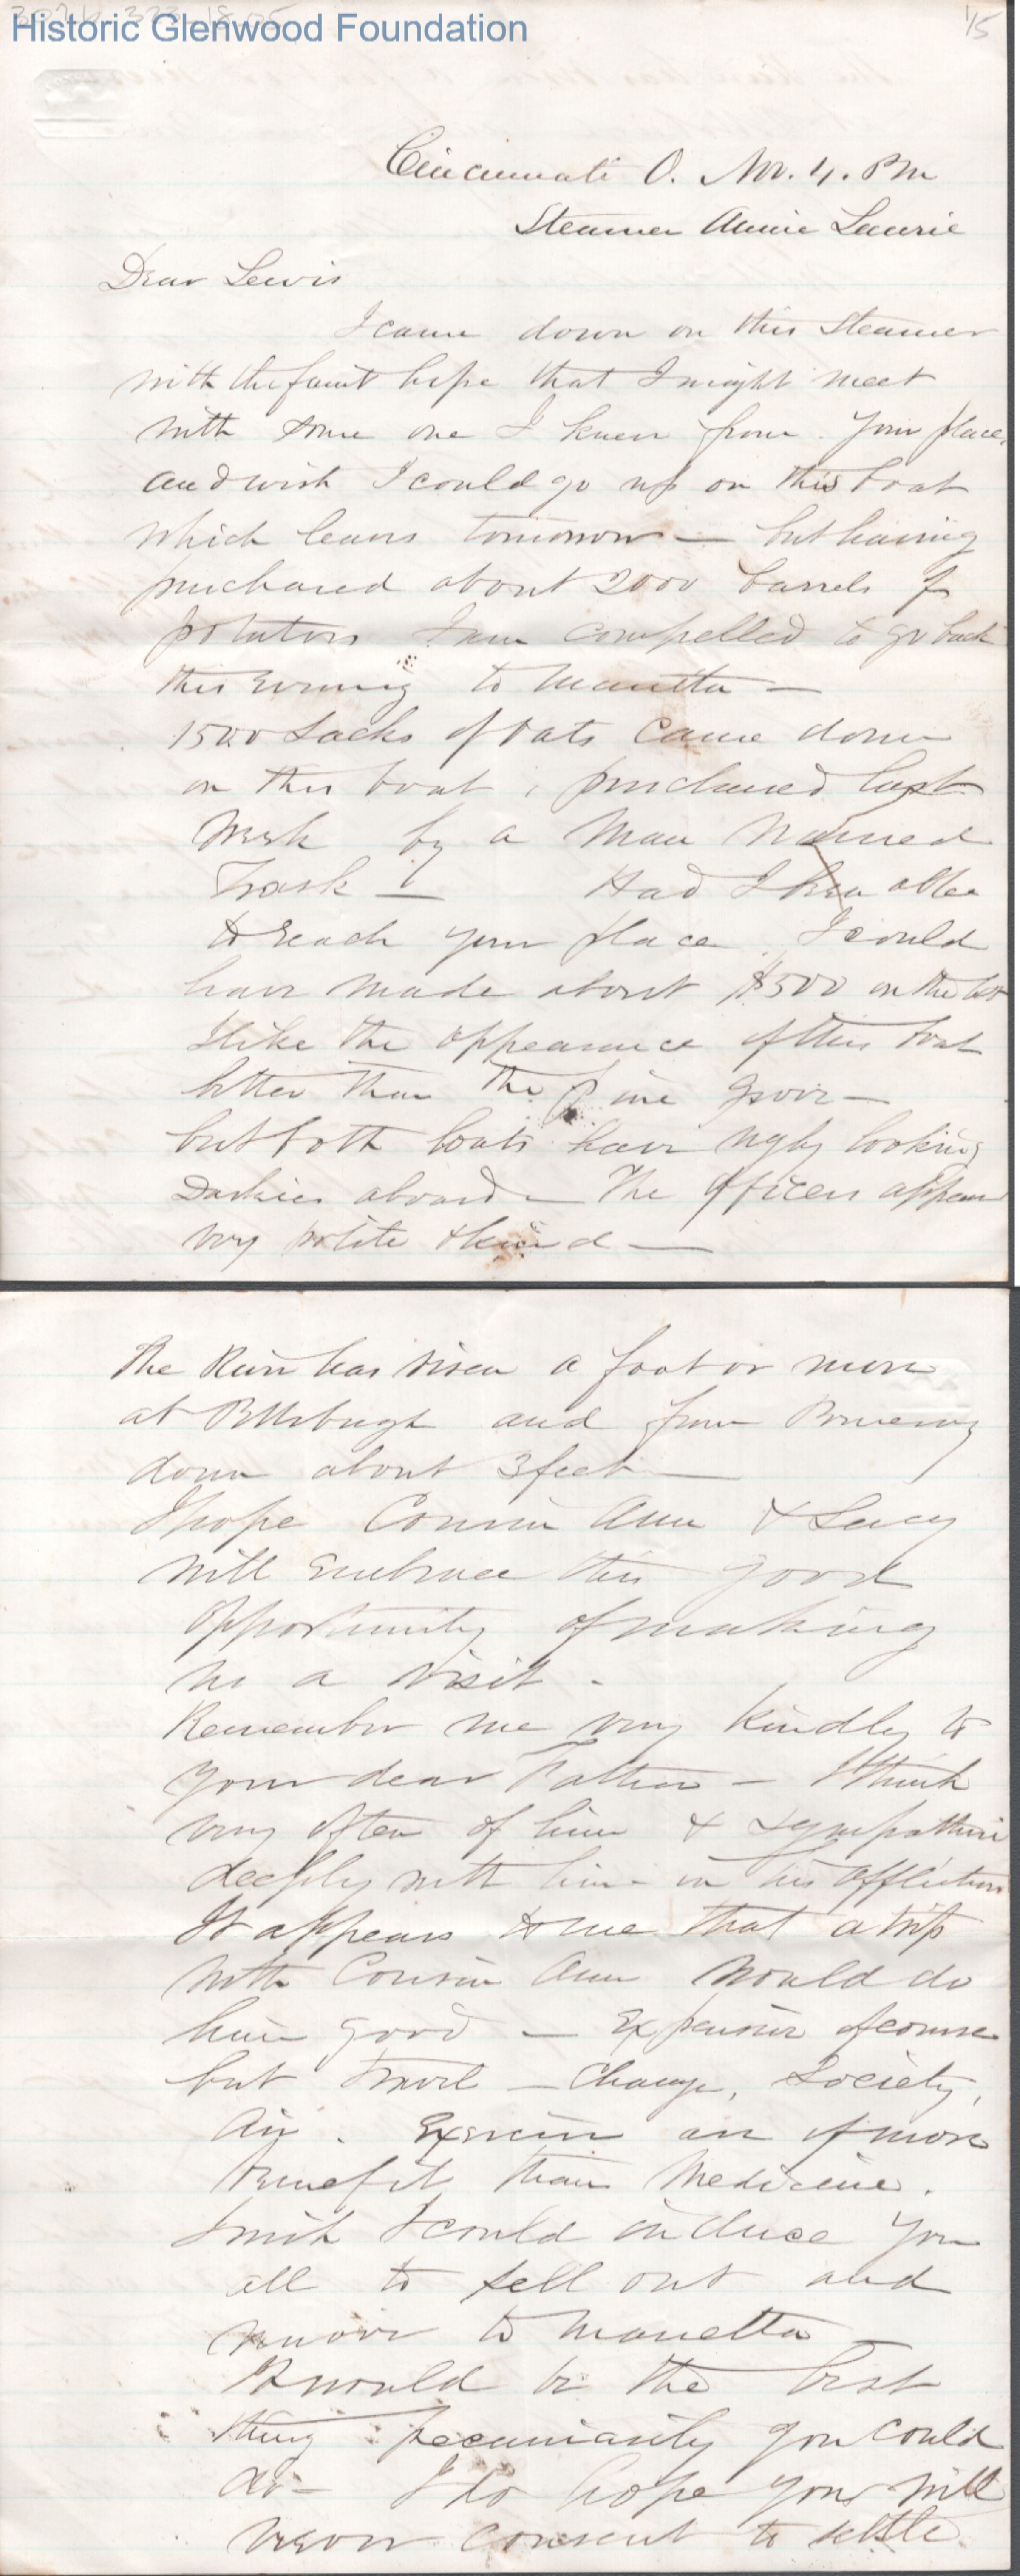 Historic Glenwood Foundation
1/5
Cincinnati O. Nov. 4. PM
Steamer Annie Laurie
Dear Lewis
I came down on this Steamer
with the faint hope that I might meet
with some one I knew from your place,
and wish I could go up on this boat
which leaves tomorrow — but having
purchased about 2000 barrels of
potatoes I am compelled to go back
this evening to Marietta —
1500 Sacks of oats came down
on this boat, purchased last
week by a Man Named
Trask — Had I been able
to reach your place I could
have made about $500 on the lot
I like the appearance of this boat
better than the Pine Grove —
but both boats have ugly looking
Darkies aboard — The Officers appear
very polite & kind —
The River has risen a foot or more
at Pittsburgh and from Pomeroy
down about 3 feet —
I hope Cousin Ann & Lucy
will Embrace this good
opportunity of making
us a visit .
Remember me very kindly to
your dear Father — I think
very often of him & sympathise
deeply with him - in his affliction
It appears to me that a trip
with Cousin Ann would do
him good — Expensive of course
but travel — Change, Society,
Air . Exercise are of more
Benefit than Medicine .
I wish I could induce you
all to sell out and
move to Marietta
It would be the best
thing pecuniarily you could
do — I do hope you will
never consent to settle